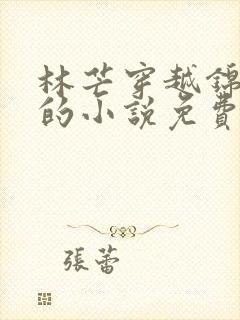 林芒穿越錦
的小說免費
張蕾